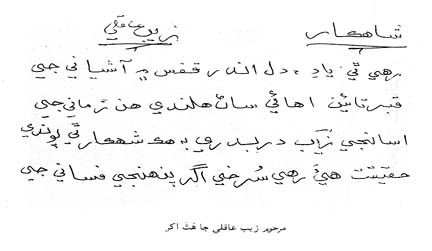 شاهڪار زيب عاقلي
رهي ٿي ياد، دل اندر قفس ۾ آشياني جي
قبر تائين اهائي ساٿ هلندي هن زماني جي
اسانجي زيب دربدري به هڪ شهڪار ٿي پوندي
حقيقت هيءَ رهي سُرخي اگر پنهنجي فساني جي
مرحوم زيب عاقلي جا هٿ اکر